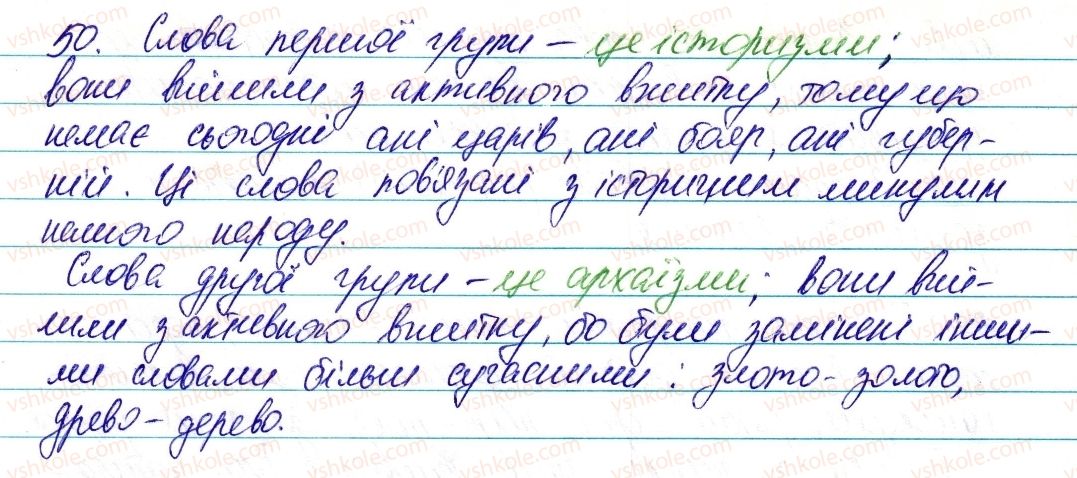 50. Слова першої групи – це історизми;
вони вийшли з активного вжитку, тому що
немає сьогодні ані царів, ані бояр, ані губер-
ній. Ці слова пов'язані з історичним минулим
нашого народу.
Слова другої групи – це архаїзми; вони вий-
шли з активного вжитку, бо були замінені інши-
ми словами більш сучасними: злото - золото,
древо - дерево.